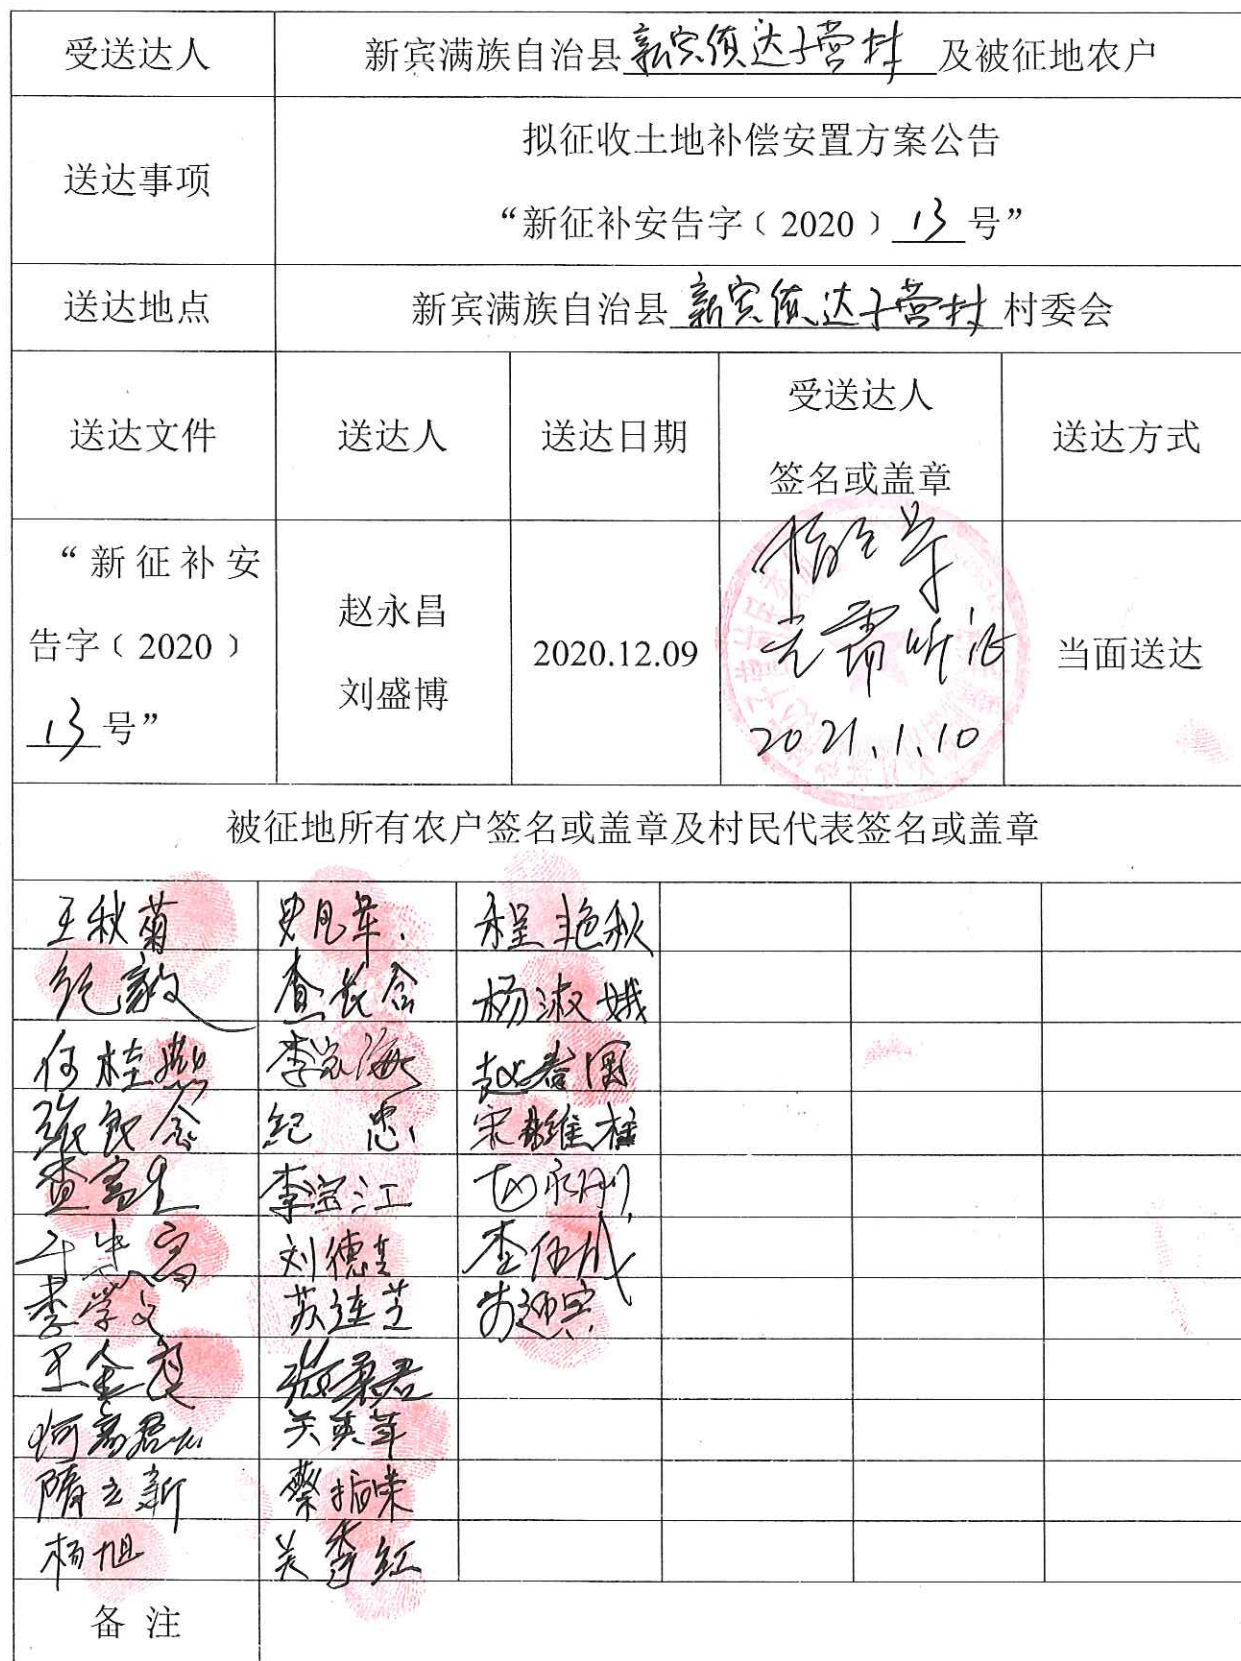 受送达人
新宾满族自治县新宾镇达子营村 及被征地农户
送达事项
拟征收土地补偿安置方案公告
“新征补安告字﹝2020﹞13号”
送达地点
新宾满族自治县新宾镇达子营村村委会
送达文件
送达人
送达日期
受送达人
签名或盖章
送达方式
“新征补安
告字﹝2020﹞
13号”
赵永昌
刘盛博
2020.12.09
无需听证
2021.1.10
当面送达
被征地所有农户签名或盖章及村民代表签名或盖章
王秋菊
程艳秋
纪毅
查长念
杨淑娥
何桂
李宝海
赵春
纪 忠
宋 维
查富生
李宝江
李学文
刘德
苏连芝
王金
关英
隋立新
蔡振荣
杨旭
关香红
备 注